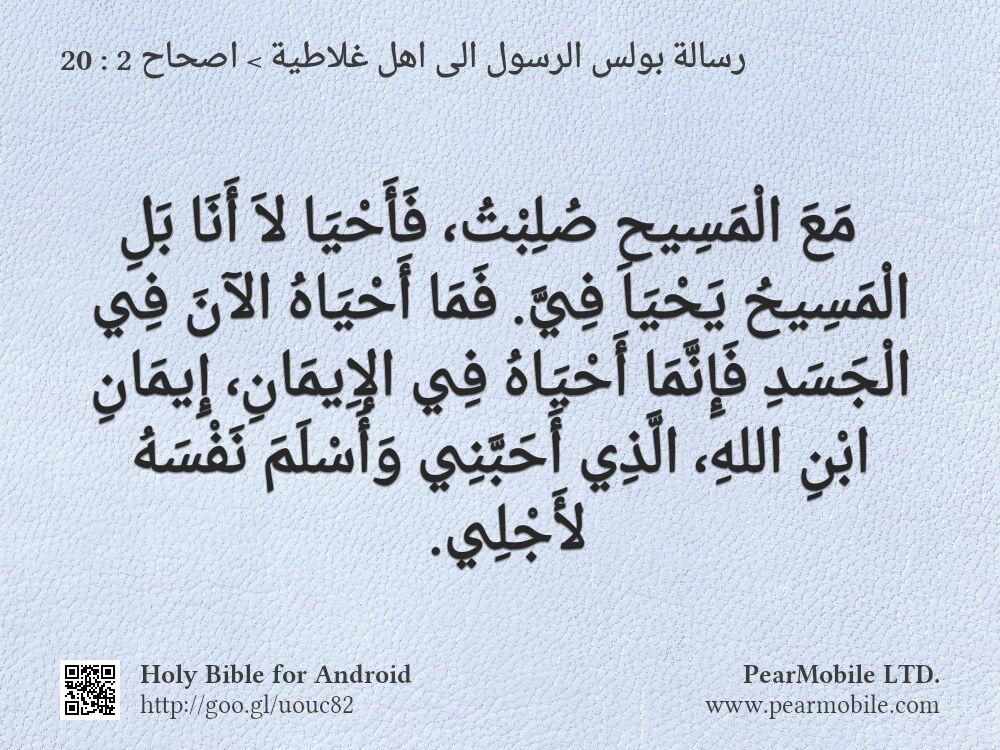 رسالة بولس الرسول الى اهل غلاطية > اصحاح 2 : 20
مَعَ الْمَسِيحِ صُلِبْتُ، فَأَحْيَا لاَ أَنَا بَلِ
الْمَسِيحُ يَحْيَا فِيَّ. فَمَا أَحْيَاهُ الآنَ فِي
الْجَسَدِ فَإِنَّمَا أَحْيَاهُ فِي الإِيمَانِ، إِيمَانِ
ابْنِ اللهِ، الَّذِي أَحَبَّنِي وَأَسْلَمَ نَفْسَهُ
لأَجْلِي.
Holy Bible for Android
http://goo.gl/uouc82
PearMobile LTD.
www.pearmobile.com